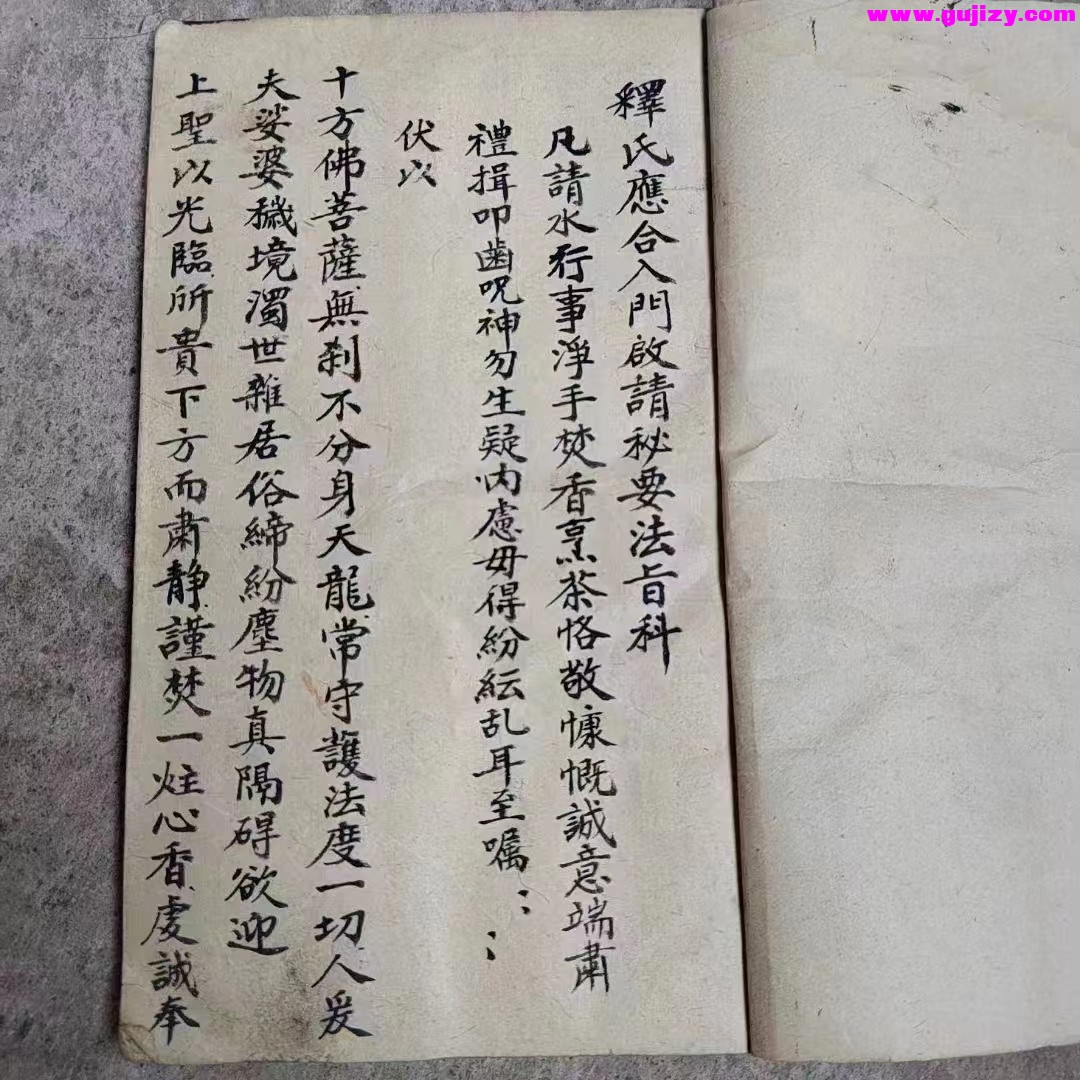 www.gujizy.com
釋氏應合入門啟請秘要法旨科
凡請水行事淨手焚香烹茶恪敬慷慨誠意端肅
禮揖叩齒咒神勿生疑內慮毋得紛紜乱耳至嘱：：
伏以
十方佛菩薩無刹不分身天龍常守護法度一切人爰
夫娑婆穢境濁世雜居俗締紛塵物真隔碍欲迎
上聖以光臨所貴下方而肅静謹焚一炷心香虔誠奉